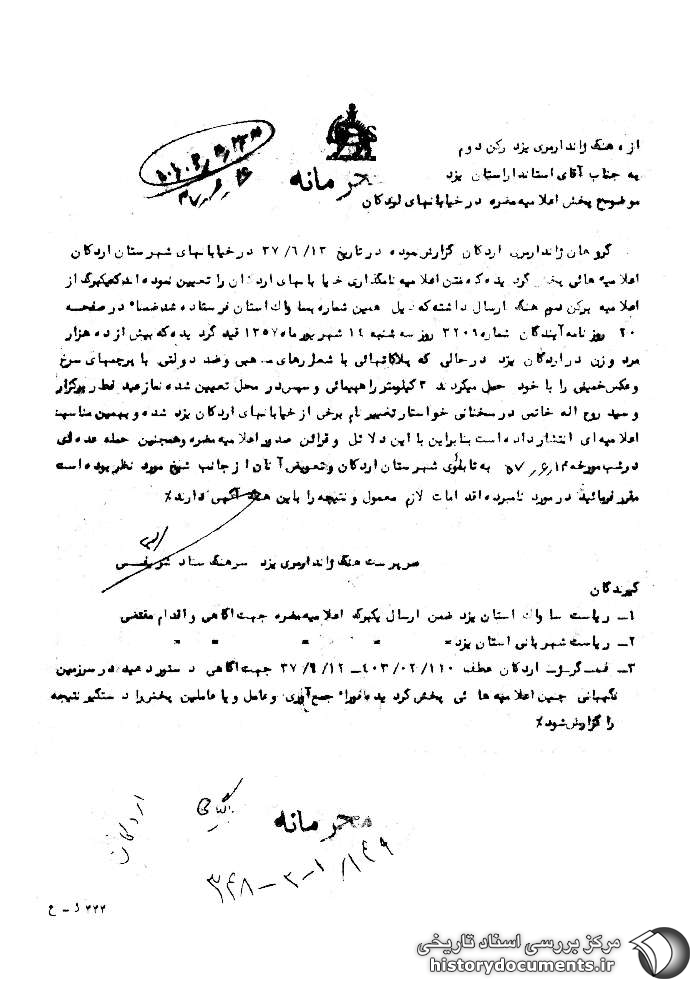 از: هنگ ژاندارمری یزد رکن دوم
به جناب آقای استاندار استان یزد
محرمانه
موضوع پخش اعلامیه مضره در خیابانهای اردکان
گروهان ژاندارمری اردکان گزارش نموده در تاریخ ۳۷/۶/۱۳ در خیابانهای شهرستان اردکان
اعلامیه هائی پخش گردیده که متن اعلامیه نامگذاری خیابانهای اردکان را تعیین نموده اند که یکبرگ از
اعلامیه برکن دوم هنگ ارسال داشته که ذیل همین شماره بساواک استان فرستاده شد ضمنا" در صفحه
۲۰ روزنامه آیندگان شماره ۳۲۰۹ روز سه شنبه ۱۴ شهریور ماه ۱۳۵۷ قید گردیده که بیش از ده هزار
مرد و زن در اردکان یزد در حالی که پلاکاتهائی با شعارهای مذهبی و ضد دولتی با پرچمهای سرخ
و عکس خمینی را با خود حمل میکردند ۳ کیلومتر راهپیمائی و سپس در محل تعیین شده نماز عید فطر برگزار
و سید روح اله خاتمی در سخنانی خواستار تغییر نام برخی از خیابانهای اردکان یزد شده و بهمین مناسبت
اعلامیه ای انتشار داده است بنابراین با این دلائل و قرائن صدور اعلامیه مضره و همچنین حمله عده ای
در شب مورخه ۵۷/۶/۱۲ به تابلوی شهرستان اردکان و تعویض آنان از جانب شیخ مورد نظر بوده است
مقرر فرمائید در مورد نامبرده اقدامات لازم معمول و نتیجه را باین هنگ آگهی دارند٪
سرپرست هنگ ژاندارمری یزد سرهنگ ستاد
گیرندگان
۱ـ ریاست ساواک استان یزد ضمن ارسال یکبرگ اعلامیه مضره جهت آگاهی و اقدام مقتضی
۲ـ ریاست شهربانی استان یزد " " " " "
۳ـ اردکان عطف ۴۰۳/۰۲/۱۱۰ـ ۳۷/۶/۱۲ جهت آگاهی دستور دهید در سرزمین
نگهبانی چنین اعلامیه هائی پخش گردیده فورا" جمع آوری و عامل و یا عاملین پخش را دستگیر نتیجه
را گزارش شود٪
بایگانی
اردکان
محرمانه
۳۴۸-۲-۱/۱۴۹
۲۲۲ د ـ ح
مرکز بررسی اسناد تاریخی
historydocuments.ir